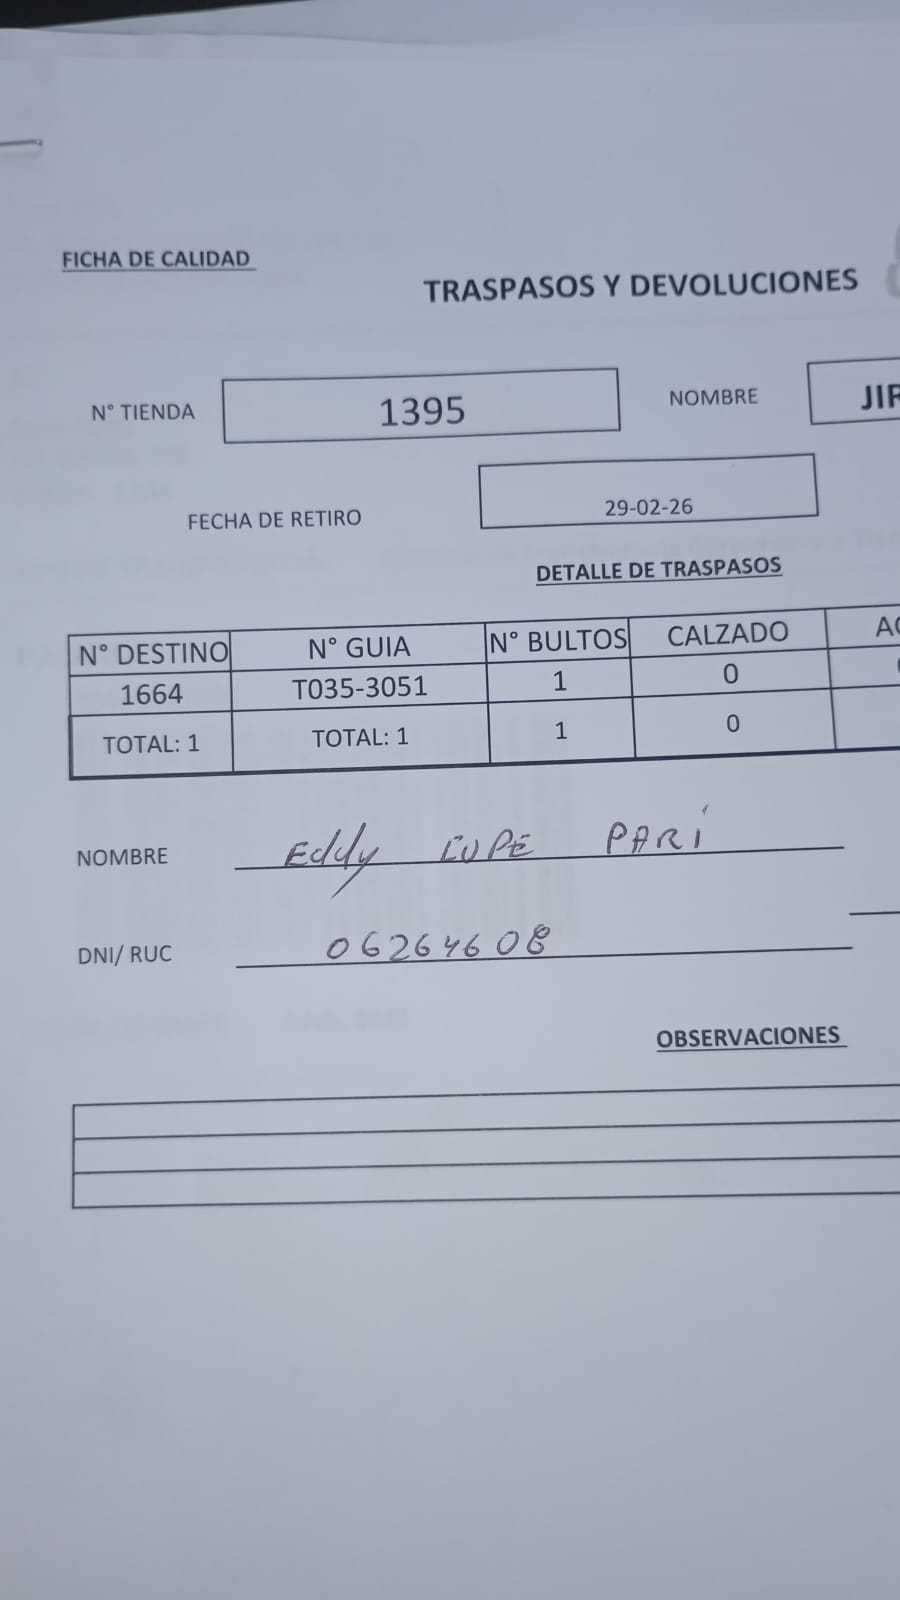 FICHA DE CALIDAD
TRASPASOS Y DEVOLUCIONES
N° TIENDA 1395 NOMBRE JIR
FECHA DE RETIRO 29-02-26
DETALLE DE TRASPASOS
N° DESTINO N° GUIA N° BULTOS CALZADO
1664 T035-3051 1 0
TOTAL: 1 TOTAL: 1 1 0
NOMBRE Eddy CUPE PARi
DNI/ RUC 06264608
OBSERVACIONES